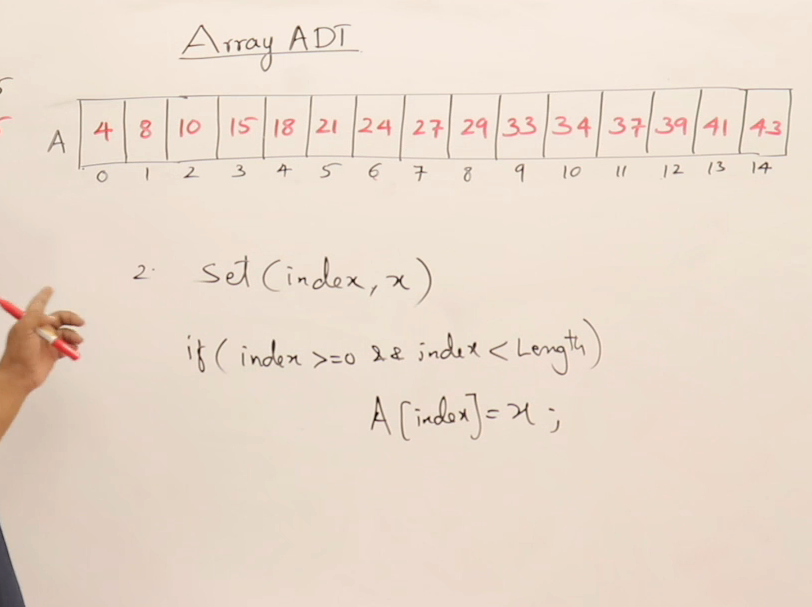 Array ADT
A 4 8 10 15 18 21 24 27 29 33 34 37 39 41 43
0 1 2 3 4 5 6 7 8 9 10 11 12 13 14
2. Set (index, x)
if ( index >=0 && index < Length)
A[index] = x ;